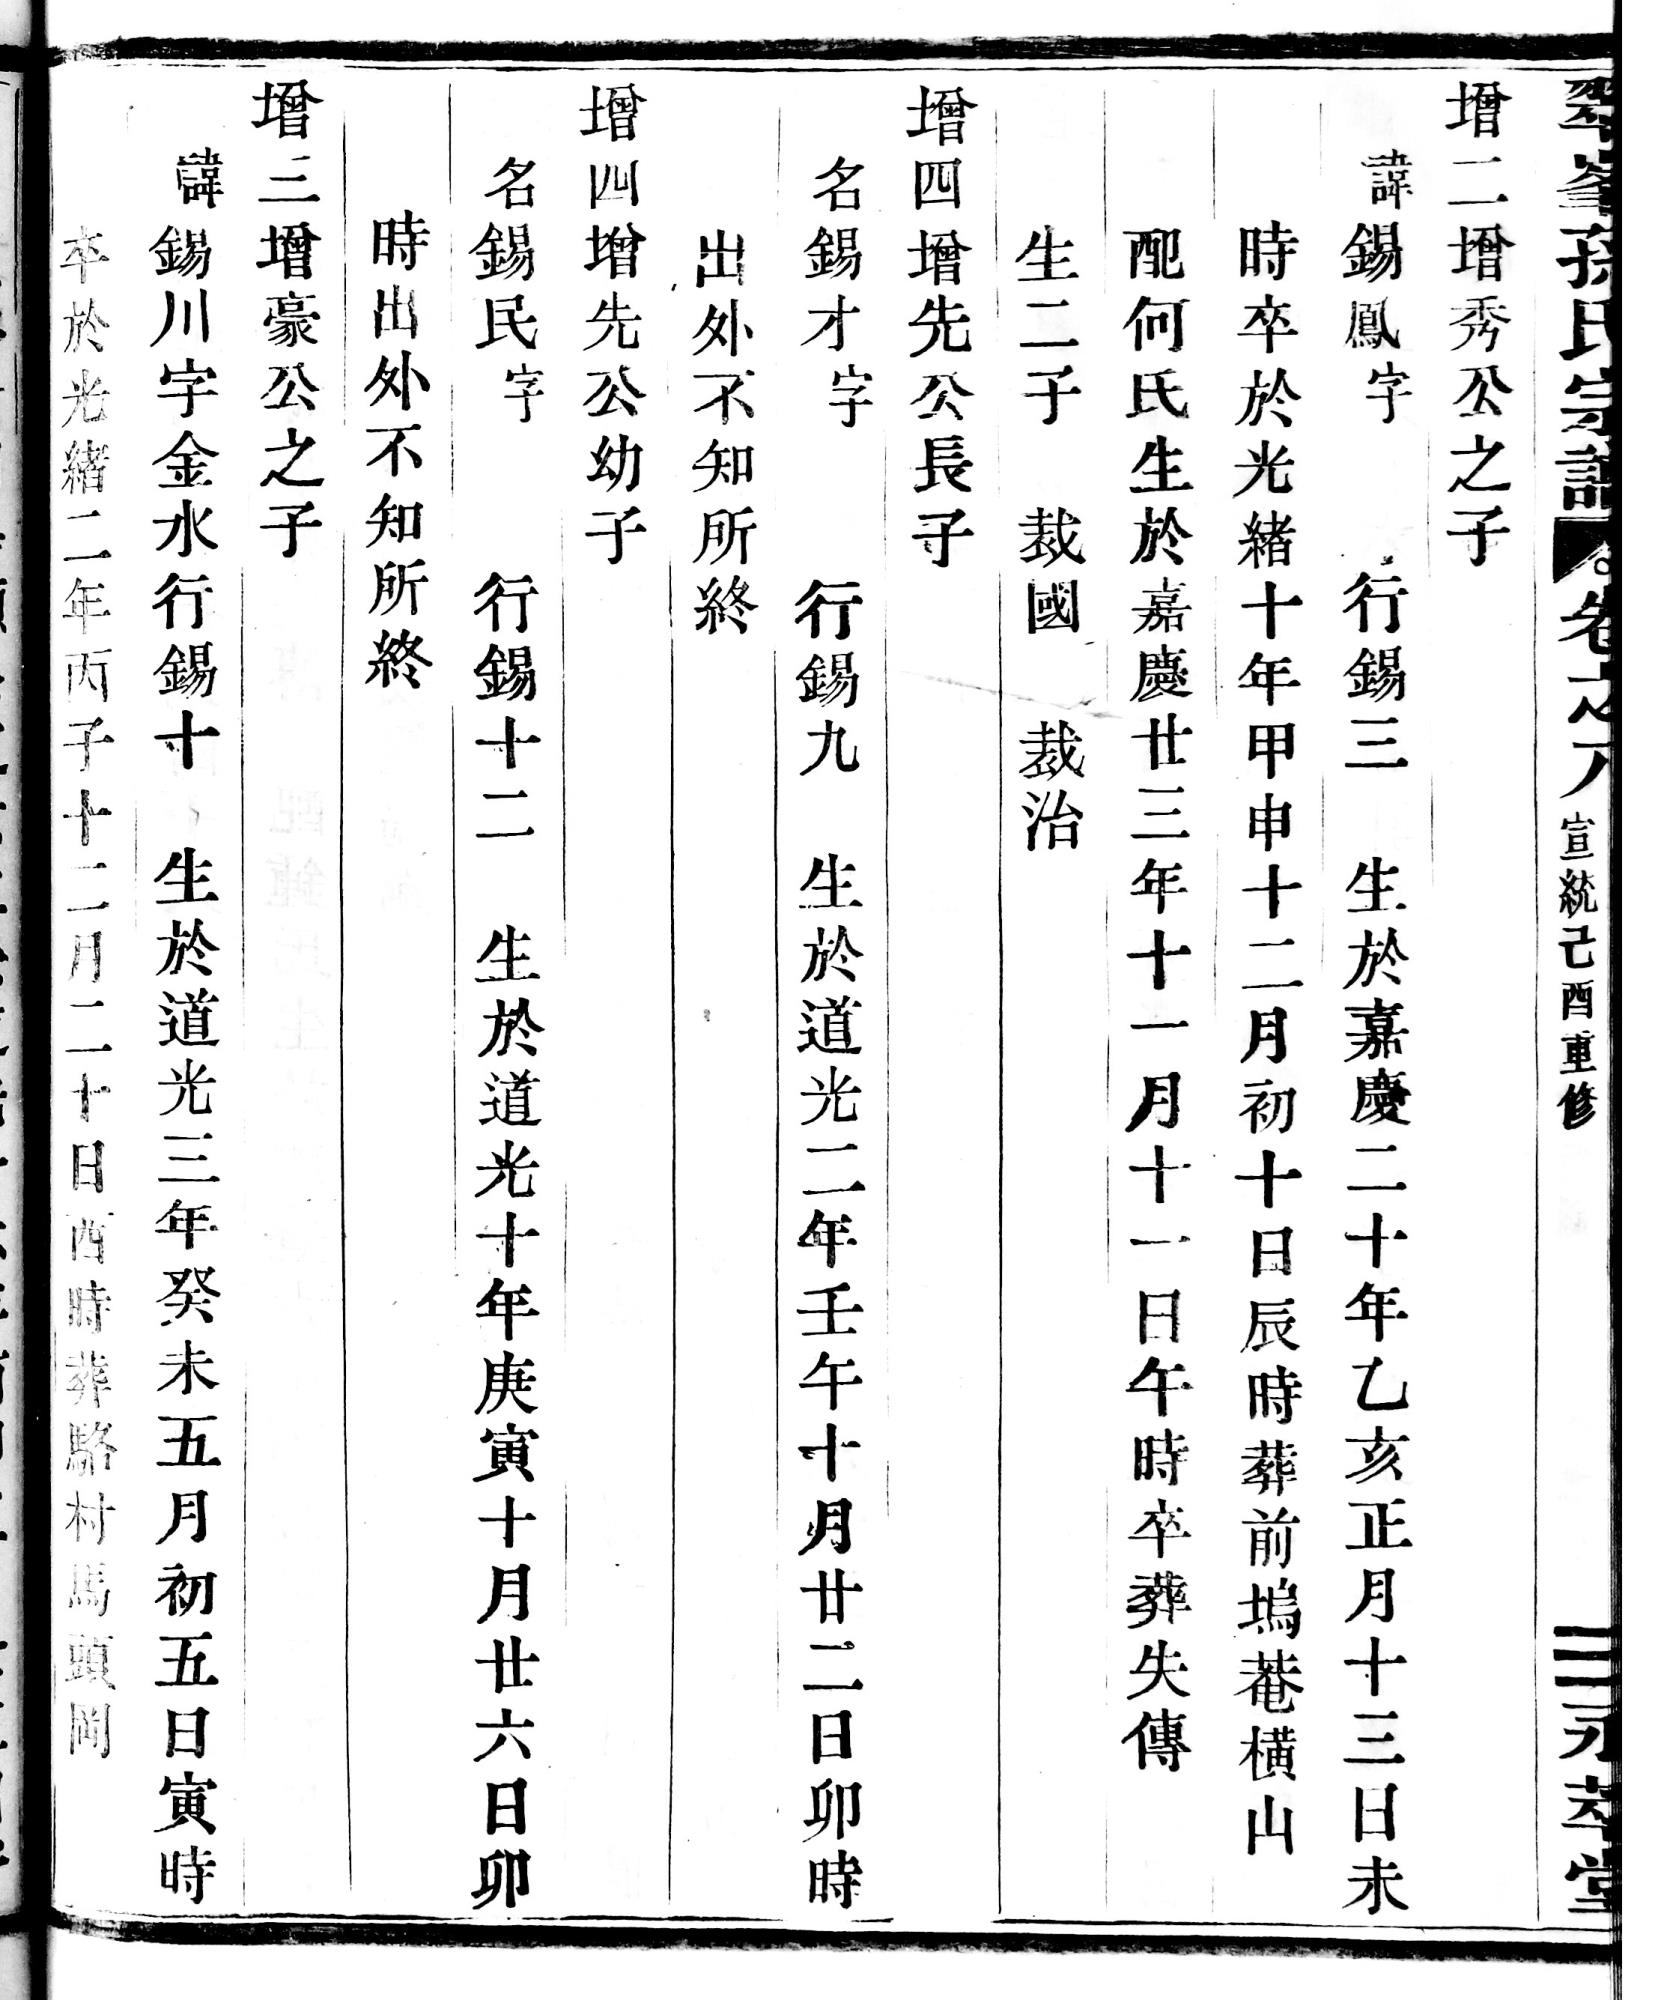 翠峯孫氏宗譜 卷之八 宣統己酉重修 三 永萃堂
增二增秀公之子
諱錫鳳字 行錫三 生於嘉慶二十年乙亥正月十三日未
時卒於光緒十年甲申十二月初十日辰時葬前塢菴橫山
配何氏生於嘉慶廿三年十一月十一日午時卒葬失傳
生二子 裁國 裁治
增四增先公長子
名錫才字 行錫九 生於道光二年壬午十月廿二日卯時
出外不知所終
增四增先公幼子
名錫民字 行錫十二 生於道光十年庚寅十月廿六日卯
時出外不知所終
增三增豪公之子
諱錫川字金水行錫十 生於道光三年癸未五月初五日寅時
卒於光緒二年丙子十二月二十日酉時葬駱村馬頭岡